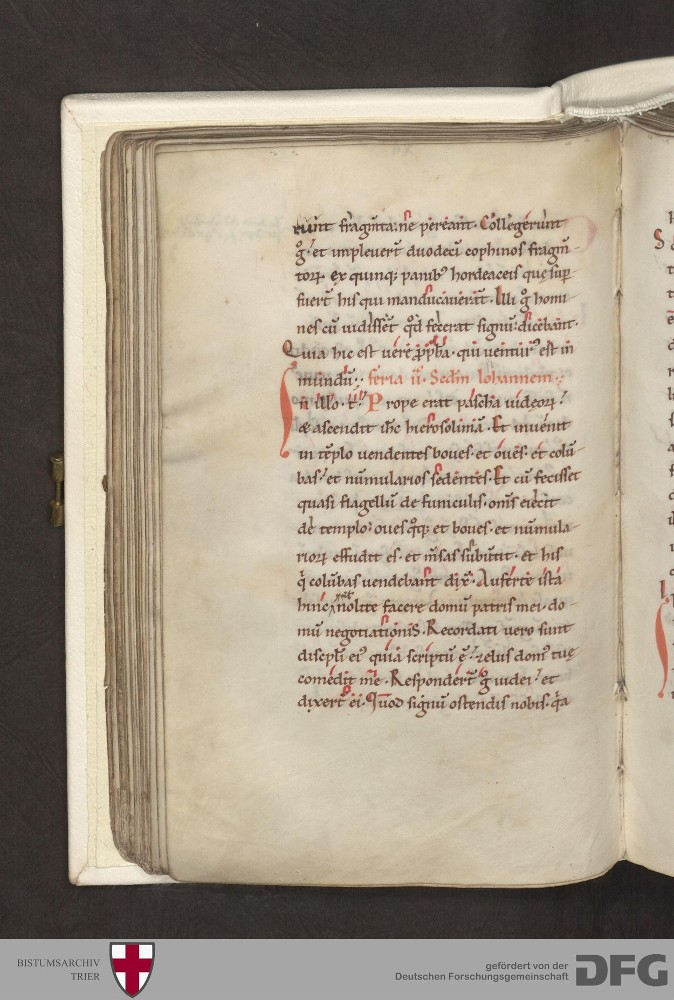 runt fragm̄ta: ne pereant. Collegerunt
g̊ et impleuer̄t duodecī cophinos fragm̄-
toꝝ ex quinq; panib᷒ hordeaceis quę suꝑ
fuer̄t his qui manducauerāt. Illi g̊ homi
nes cū uidissēt qd̄ fecerat signū: dicebant.
Quia hic est uere ꝓph̄a. qui uentur᷒ est in
mundū. feria ii. Scdm̄ Iohannem.
In illo. t̄. Prope erat pascha iudeoꝝ
& ascendit ih̄c hierosolimā. Et inuenit
in tēplo uendentes boues. et oues. et colū
bas. et nūmularios sedentes. Et cū fecisset
quasi flagellū de funiculis. om̄s eiecit
de templo: oues q̊q; et boues. et nūmula
rioꝝ effudit es. et m̄sas subuertit. et his
q̇ colūbas uendebant dix̄. Auferte ista
hinc et nolite facere domū patris mei. do
mū negotiationis. Recordati uero sunt
discipl̄i ei᷒ quia scriptū ē. zelus dom᷒ tuę
comedit me. Responder̄t g̊ iudei. et
dixer̄t ei. Quod signū ostendis nobis. q̄a
BISTUMSARCHIV
TRIER
gefördert von der
Deutschen Forschungsgemeinschaft
DFG